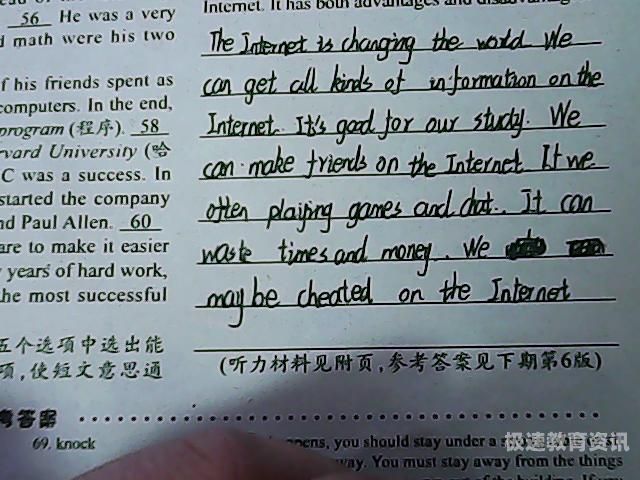 Internet. It has both advantages and
56 He was a very
d math were his two
The Internet is changing the world We
can get all kinds of information on the
Internet. It's good for our study. We
can make friends on the Internet If we
often playing games and chat.. It can
waste times and money. We
may be cheated on the Internet
of his friends spent as
computers. In the end,
program (程序). 58
rvard University (哈
C was a success. In
started the company
nd Paul Allen. 60
are to make it easier
years of hard work,
he most successful
五个选项中选出能
项,使短文意思通
(听力材料见附页,参考答案见下期第6版)
考答案
69. knock
ppens, you should stay under a
way. You must stay away from the things
极速教育资讯